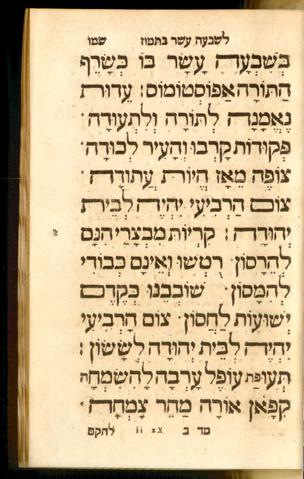 לשבעה עשר בתמוז שמו
בְּשִׁבְעָה עָשָׂר בּוֹ כְּשָׂרַף
הַתּוֹרָה אַפּוֹסְטוֹמוֹס: עֵדוּת
נֶאֱמָנָה לְתוֹרָה וְלִתְעוּדָה
פְּקוּדוֹת קָרְבוּ וְהָעִיר לְכוּדָה
צוֹפֶה מֵאָז הֱיוֹת עֲתוּדָה
צוֹם הָרְבִיעִי יִהְיֶה לְבֵית
יְהוּדָה: קִרְיוֹת מִבְצָרַי הִנָּם
לַהֶרָסוֹן רֻטְּשׁוּ וְאֵינָם כְּבוֹדִי
לְהַמָּסוֹן שׁוֹבְבֵנוּ כְּקֶדֶם
יְשׁוּעוֹת לַחֲסוֹן צוֹם הָרְבִיעִי
יִהְיֶה לְבֵית יְהוּדָה לְשָׂשׂוֹן:
תְּעוּפַת עוֹפֶל עֲרֵבָה לְהַשְׂמִחָה
קִפָּאוֹן אוֹרָה מַהֵר צָמְחָה
מד ב ii zX להקם